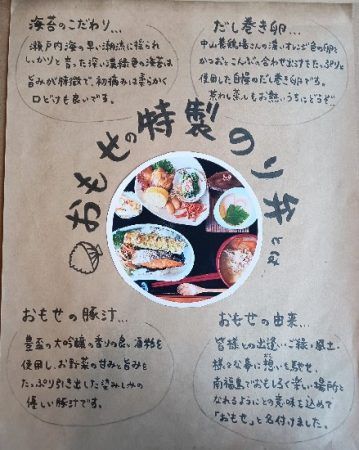 海苔のこだわり…
瀬戸内海の早い潮流に揺られ
しっかりと育った深い濃緑色の海苔は
旨みが特徴で、初摘みは柔らかく
口どけも良いです。
だし巻き卵…
中山養鶏場さんの濃いオレンジ色の卵と
かつおとこんぶの合わせ出汁をたっぷりと
使用した自慢のだし巻き卵です。
茶わん蒸しもお熱いうちにどうぞ…
おもせの特製のり弁
おもせの豚汁…
豊盃の大吟醸の香りの良い酒粕を
使用し、お野菜の甘みと旨みを
たっぷり引き出した染みしみの
優しい豚汁です。
おもせの由来…
皆様との出逢い・ご縁・風土・
様々な事に想いを馳せ、
南福島でおもしろく楽しい場所と
なれるようにとの意味を込めて
「おもせ」と名付けました。